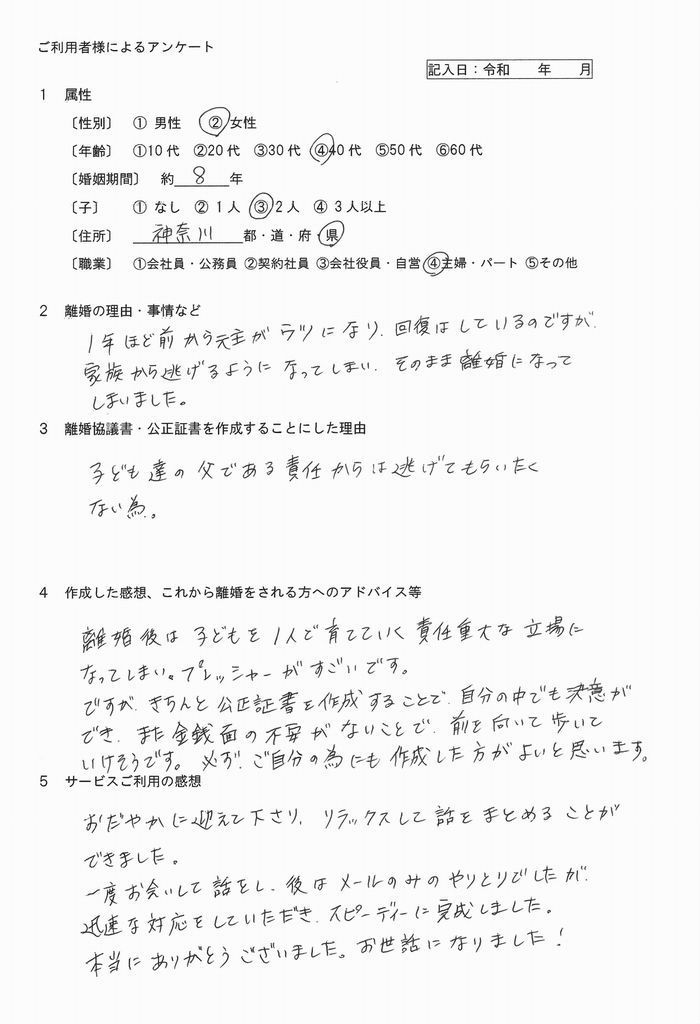 ご利用者様によるアンケート
記入日：令和　　年　　月
1　属性
〔性別〕　① 男性　② 女性
〔年齢〕　①10代　②20代　③30代　④40代　⑤50代　⑥60代
〔婚姻期間〕　約　8　年
〔子〕　① なし　② 1人　③ 2人　④ 3人以上
〔住所〕　神奈川　都・道・府・県
〔職業〕　①会社員・公務員　②契約社員　③会社役員・自営　④主婦・パート　⑤その他
2　離婚の理由・事情など
1年ほど前から元主がウツになり、回復はしているのですが、
家族から逃げるようになってしまい、そのまま離婚になって
しまいました。
3　離婚協議書・公正証書を作成することにした理由
子ども達の父である責任からは逃げてもらいたく
ない為。
4　作成した感想、これから離婚をされる方へのアドバイス等
離婚後は子どもを1人で育てていく責任重大な立場に
なってしまい、プレッシャーがすごいです。
ですが、きちんと公正証書を作成することで、自分の中でも決意が
でき、また金銭面の不安がないことで、前を向いて歩いて
いけそうです。必ず、ご自分の為にも作成した方がよいと思います。
5　サービスご利用の感想
おだやかに迎えて下さり、リラックスして話をまとめることが
できました。
一度お会いして話をし、後はメールのみのやりとりでしたが、
迅速な対応をしていただき、スピーディーに完成しました。
本当にありがとうございました。お世話になりました！